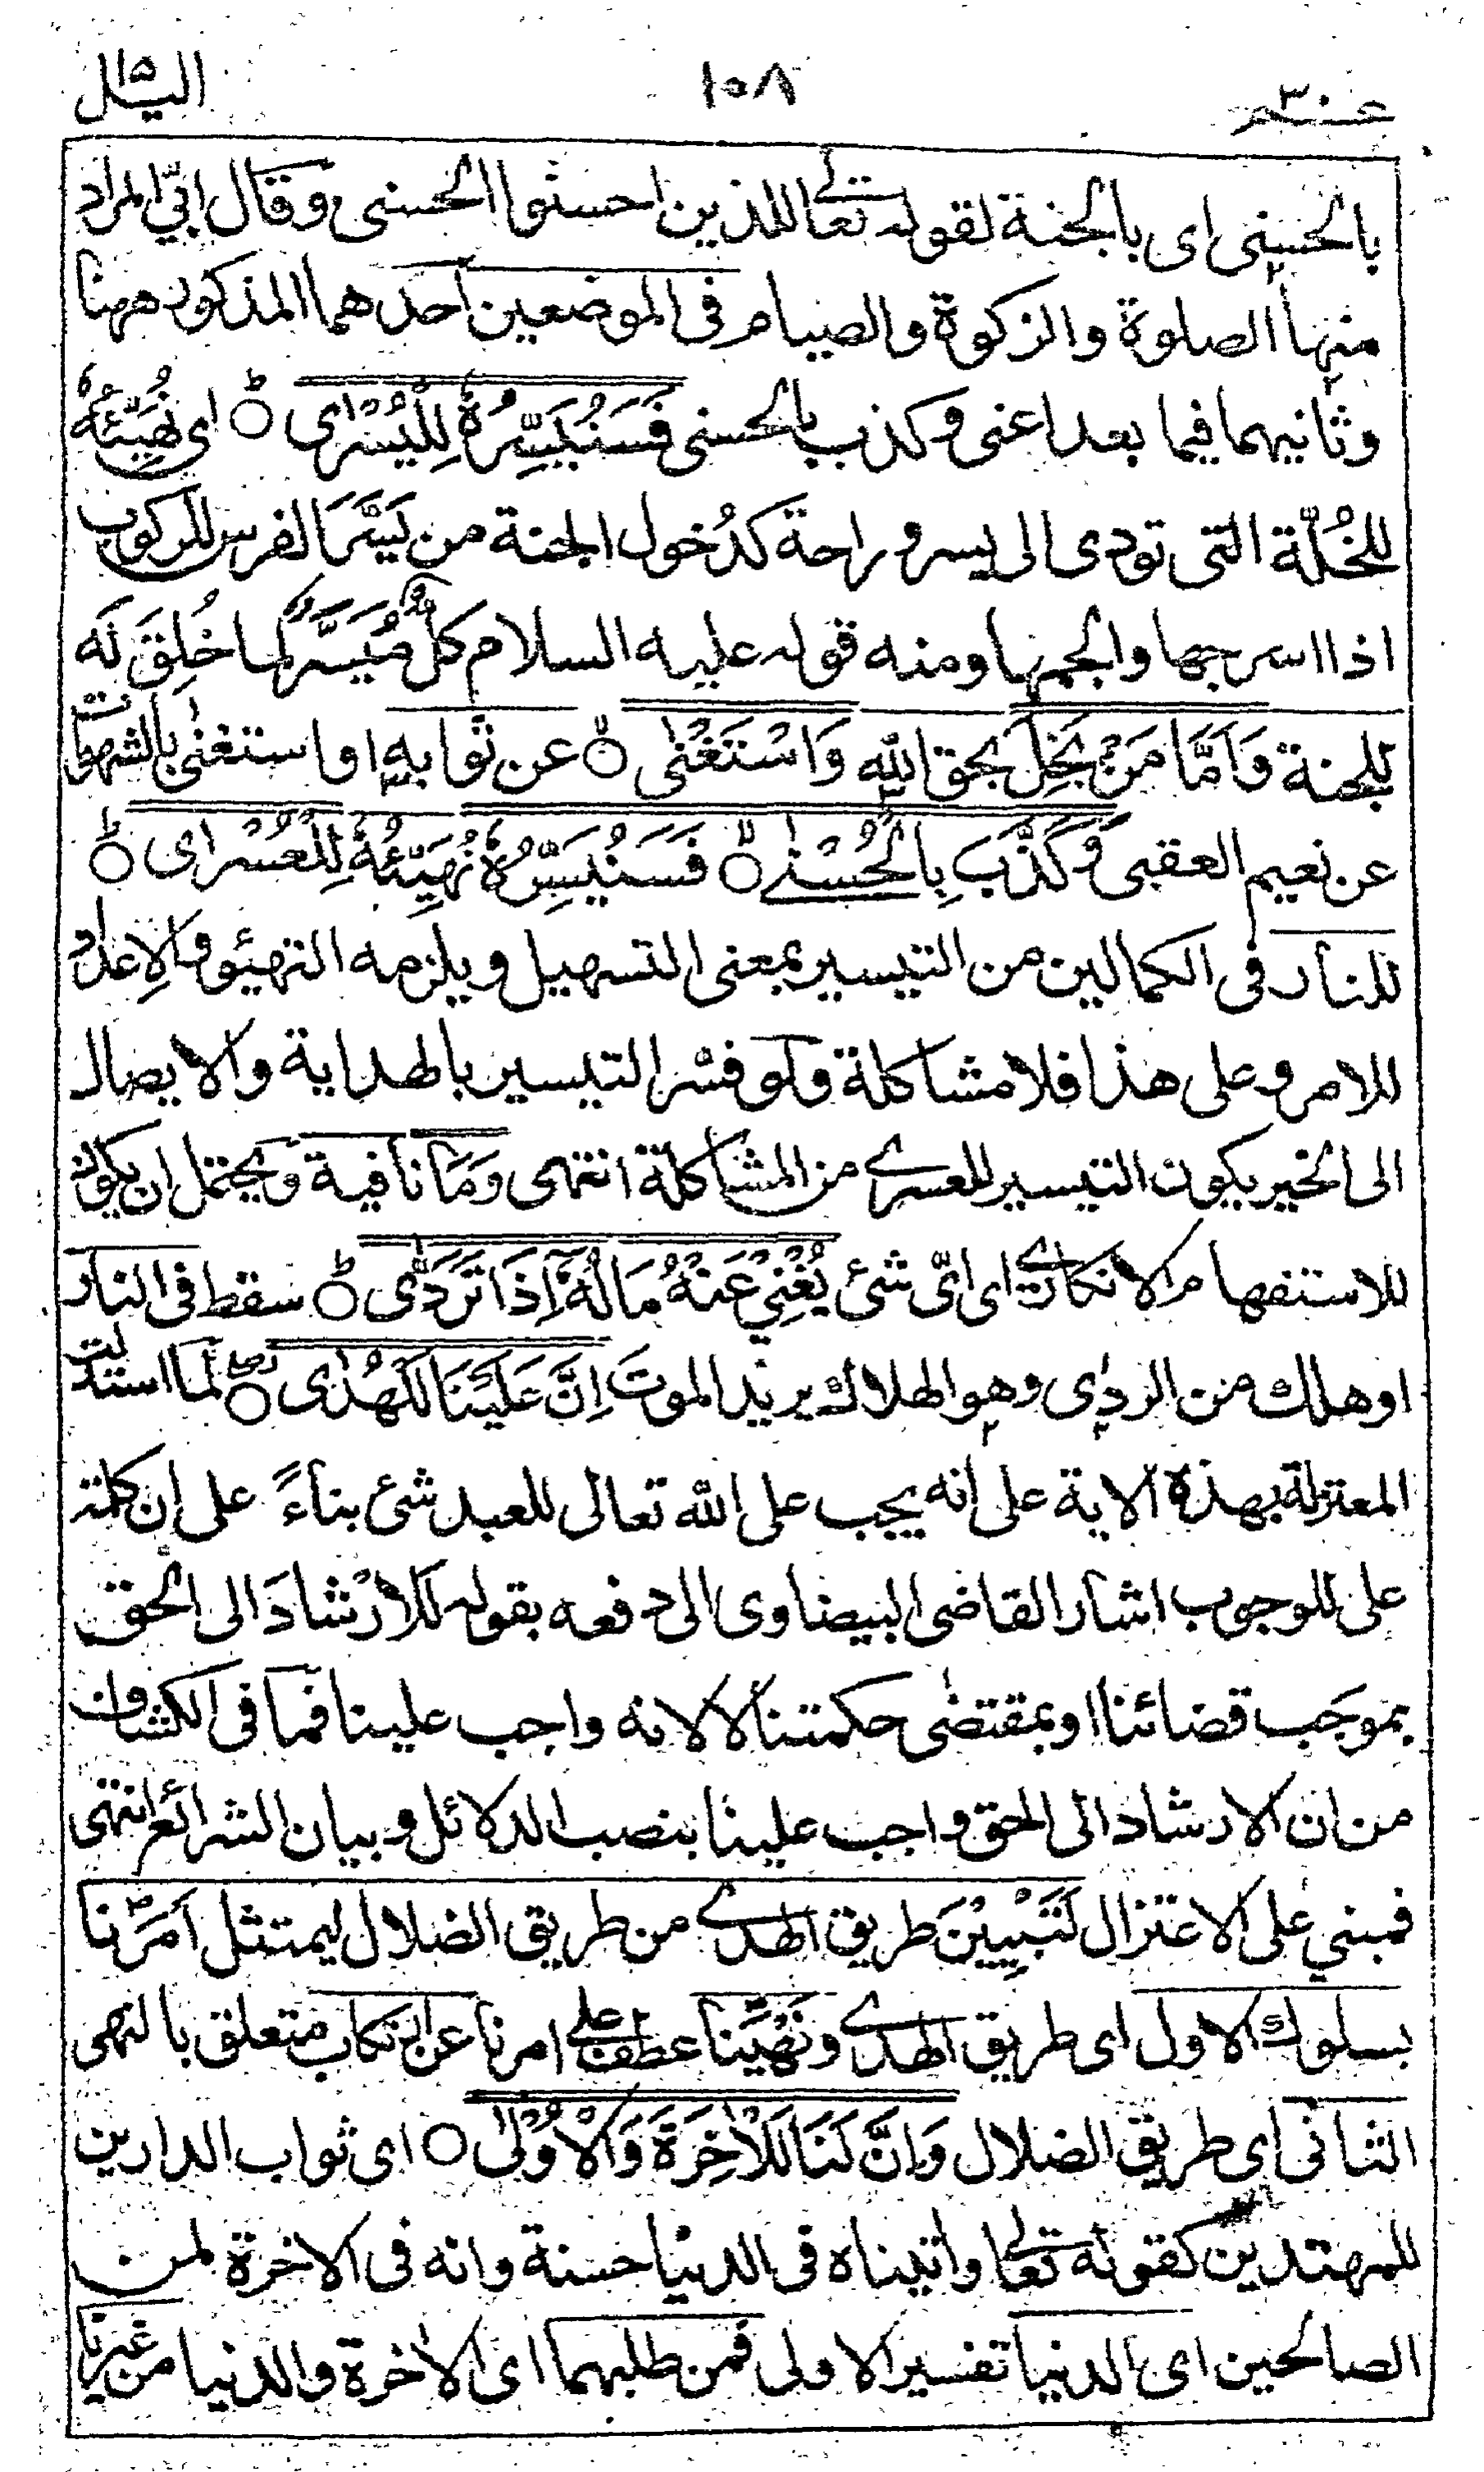 عم ٣٠ ١٥٨ اليل
بالحسنى اى بالجنة لقوله تعالى للذين احسنوا الحسنى وقال ابى المراد
منها الصلوة والزكوة والصيام فى الموضعين احدهما المذكور ههنا
وثانيهما فيما بعد اعنى وكذب بالحسنى فَسَنُيَسِّرُهٗ لِلْيُسْرٰى ○ اى نُهَيِّئُهٗ
للخُلّة التى تودى الى يسر وراحة كدُخول الجنة من يَسَّرَ الفرس للركوب
اذا اسرجها والجمها ومنه قوله عليه السلام كلٌّ مُيَسَّرٌ لما خُلِقَ لَه
للجنة وَاَمَّا مَنْۢ بَخِلَ بحق الله وَاسْتَغْنٰى ○ عن ثوابه او استغنى بالشهوات
عن نعيم العقبى وَكَذَّبَ بِالْحُسْنٰے ○ فَسَنُيَسِّرُهٗ نُهَيِّئُهٗ لِلْعُسْرٰى ○
للنار فى الكمالين من التيسير بمعنى التسهيل ويلزمه التهيئو والاعداد
للامر وعلى هذا فلا مشاكلة ولو فسّر التيسير بالهداية والايصال
الى الخير يكون التيسير للعسرے من المشاكلة انتهى وَمَا نافية ويحتمل ان يكون
للاستفهام الانكارے اى اىّ شئ يُغْنِيْ عَنْهُ مَالُهٗٓ اِذَا تَرَدّٰى ○ سقط فى النار
او هلك من الردٰى وهو الهلاك يريد الموتَ اِنَّ عَلَيْنَا لَلْهُدٰى ○ لما استدلت
المعتزلة بهذه الاية على انه يجب على الله تعالى للعبد شئ بناءً على ان كلمة
على للوجوب اشار القاضى البيضاوى الى دفعه بقوله للارشاد الى الحق
بموجَب قضائنا او بمقتضٰى حكمتنا لا لانه واجب علينا فما فى الكشاف
من ان الارشاد الى الحق واجب علينا بنصب الدلائل وبيان الشرائع انتهى
فمبني على الاعتزال لتَبْيِيْنَ طريق الهدے من طريق الضلال ليمتثل اَمرَنا
بسلوك الاول اى طريق الهدے ونَهْيَنا عطف على امرنا عن ارتكاب متعلق بالنهى
الثانى اى طريق الضلال وَاِنَّ لَنَا لَلْاٰخِرَةَ وَالْاُوْلٰى ○ اى ثواب الدارين
للمهتدين كقوله تعالى واتيناه فى الدنيا حسنة وانه فى الاخرة لمن
الصالحين اى الدنيا تفسير الاولى فمن طلبهما اى الاخرة والدنيا من غيرنا